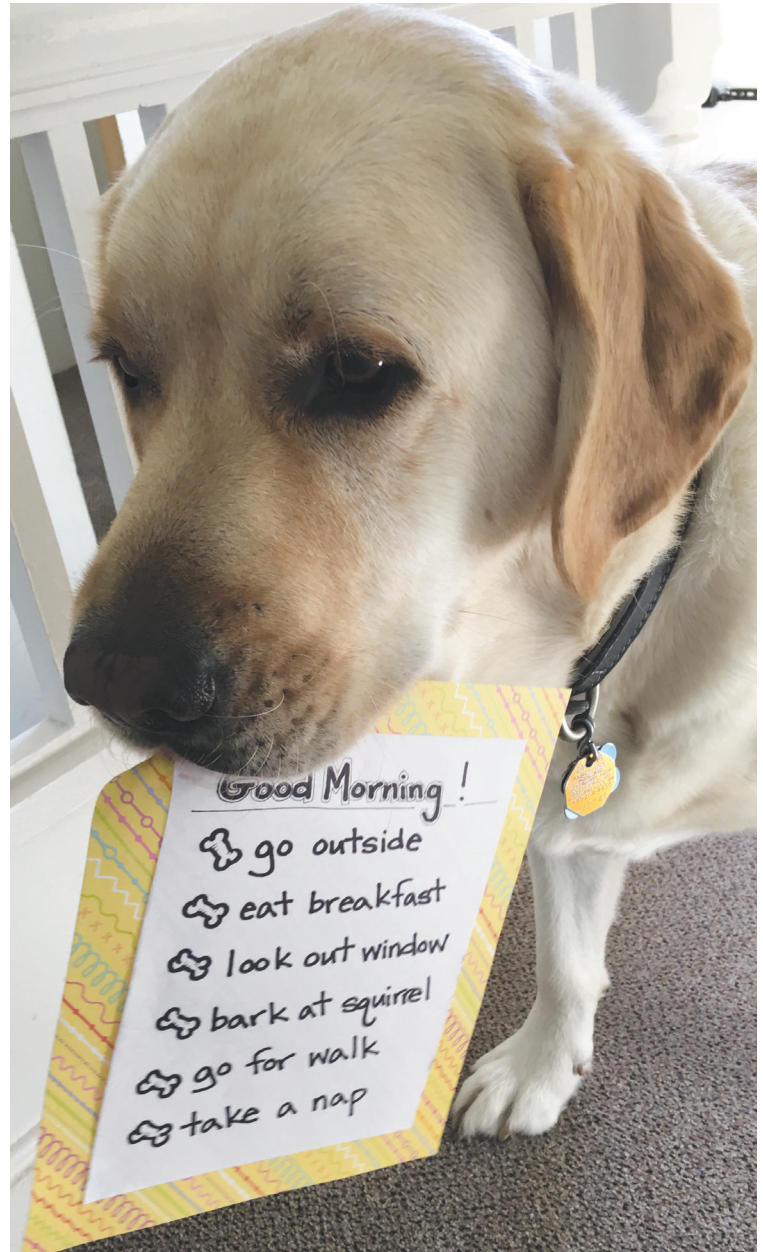 Good Morning!
go outside
eat breakfast
look out window
bark at squirrel
go for walk
take a nap